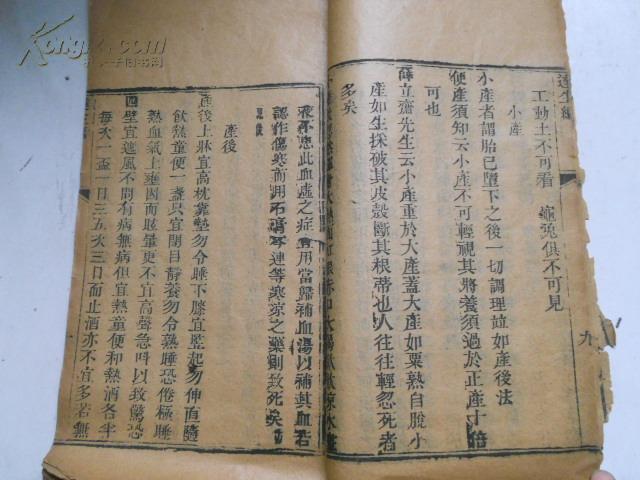 達生編
工動土不可看 龜兔俱不可見
小產
小產者謂胎已墮下之後一切調理並如產後法
便產須知云小產不可輕視其將養須過於正產十倍
可也
薛立齋先生云小產重於大產蓋大產如栗熟自脫小
產如生採破其皮殼斷其根蒂也人往往輕忽死者
多矣
九
液不應此血虛之症宜用當歸補血湯以補其血若
認作傷寒而用石膏芩連等寒涼之藥則致死矣
產後
產後上牀宜高枕靠墊勿令睡下膝宜竪起勿伸直隨
飲熱童便一盞只宜閉目靜養勿令熟睡恐倦極睡
熱血氣上壅因而眩暈更不宜高聲急呌以致驚恐
四壁宜遮風不問有病無病但宜熱童便和熱酒各半
每次一盃一日三五次三日而止酒亦不宜多若無